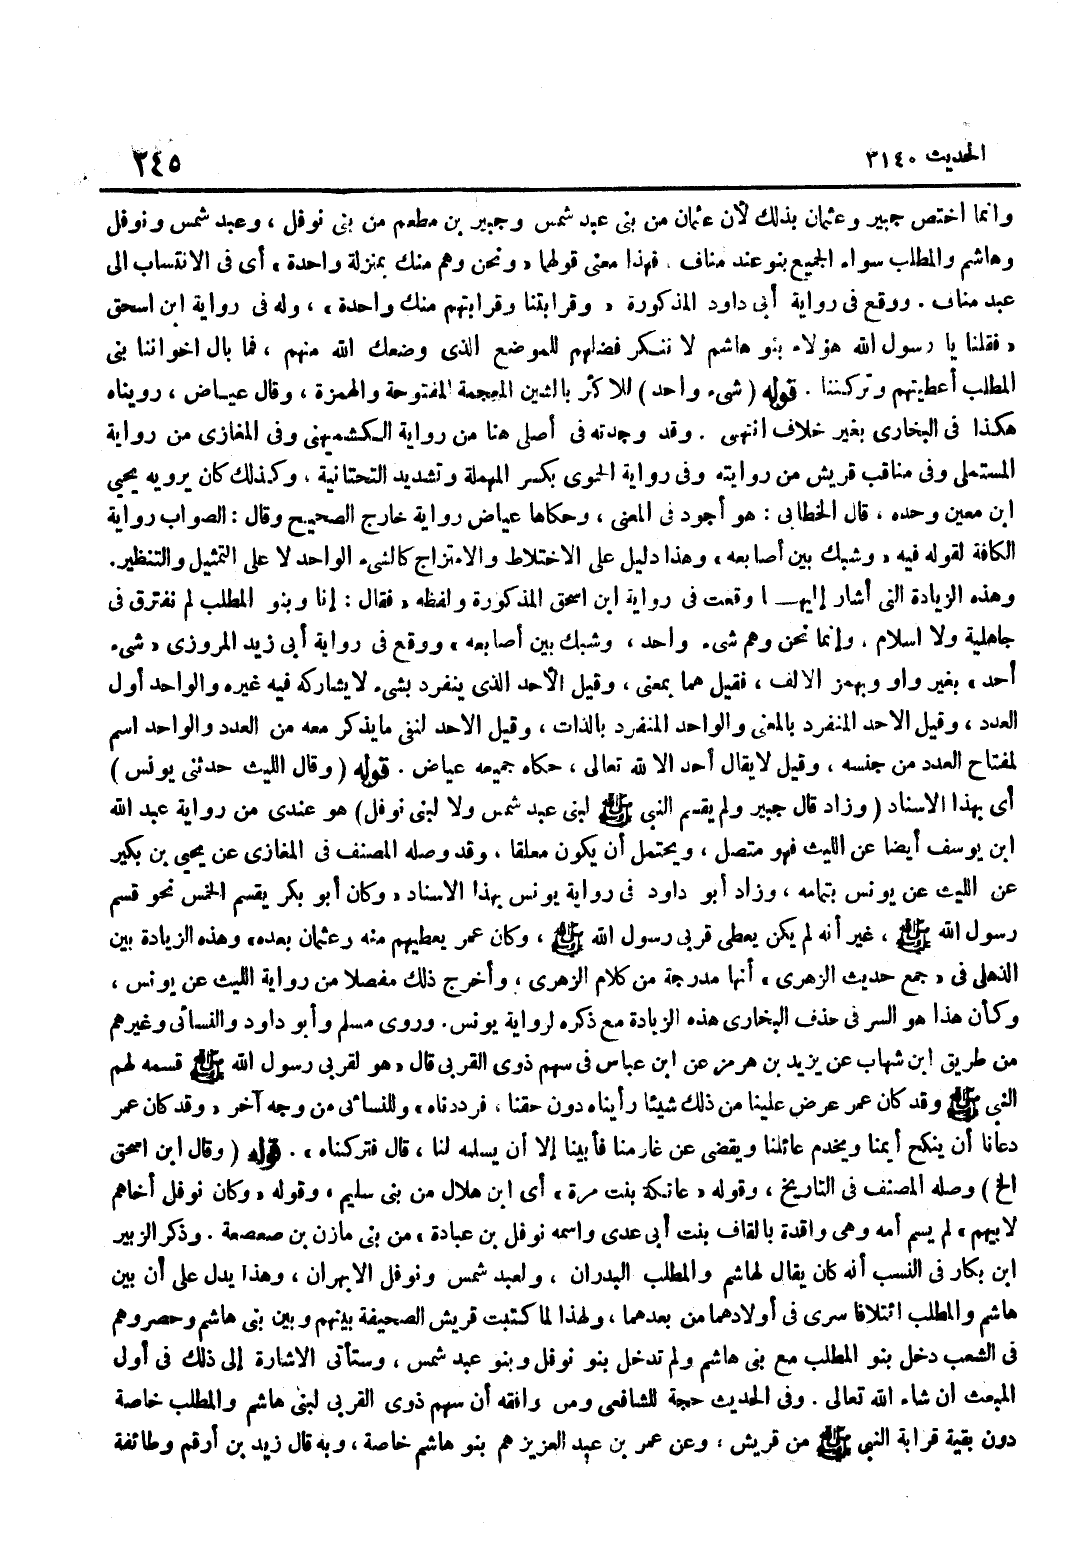 الحديث ٣١٤٠ ٢٤٥
وانما اختص جبير وعثمان بذلك لأن عثمان من بنى عبد شمس وجبير بن مطعم من بنى نوفل ، وعبد شمس ونوفل
وهاشم والمطلب سواء الجميع بنو عند مناف . فهذا معنى قولهما « ونحن وهم منك بمنزلة واحدة » أى فى الانتساب الى
عبد مناف . ووقع فى رواية أبى داود المذكورة « وقرابتنا وقرابتهم منك واحدة » ، وله فى رواية ابن اسحق
« فقلنا يا رسول الله هؤلاء بنو هاشم لا ننكر فضلهم للموضع الذى وضعك الله منهم ، فما بال اخواننا بنى
المطلب أعطيتهم وتركتنا . قوله ( شىء واحد ) للاكثر بالشين المعجمة المفتوحة والهمزة ، وقال عياض ، رويناه
هكذا فى البخارى بغير خلاف انتهى . وقد وجدته فى أصلى هنا من رواية الكشميهنى وفى المغازى من رواية
المستملى وفى مناقب قريش من روايته وفى رواية الحموى بكسر المهملة وتشديد التحتانية ، وكذلك كان يرويه يحيى
ابن معين وحده ، قال الخطابى : هو أجود فى المعنى ، وحكاها عياض رواية خارج الصحيح وقال : الصواب رواية
الكافة لقوله فيه « وشبك بين أصابعه » وهذا دليل على الاختلاط والامتزاج كالشىء الواحد لا على التمثيل والتنظير.
وهذه الزيادة التى أشار إليهـا وقعت فى رواية ابن اسحق المذكورة ولفظه « فقال : إنا وبنو المطلب لم نفترق فى
جاهلية ولا اسلام . وإنما نحن وهم شىء واحد ، وشبك بين أصابعه » ووقع فى رواية أبى زيد المروزى « شىء
أحد » بغير واو وبهمز الالف ، فقيل هما بمعنى ، وقيل الأحد الذى ينفرد بشىء لا يشاركه فيه غيره والواحد أول
العدد ، وقيل الاحد المنفرد بالمعنى والواحد المنفرد بالذات ، وقيل الاحد لنفى مايذكر معه من العدد والواحد اسم
لمفتاح العدد من جنسه ، وقيل لايقال أحد الا لله تعالى ، حكاه جميعه عياض . قوله ( وقال الليث حدثنى يونس )
أى بهذا الاسناد ( وزاد قال جبير ولم يقسم النبي ﷺ لبنى عبد شمس ولا لبنى نوفل) هو عندى من رواية عبد الله
ابن يوسف أيضا عن الليث فهو متصل ، ويحتمل أن يكون معلقا ، وقد وصله المصنف فى المغازى عن يحيى بن بكير
عن الليث عن يونس بتمامه ، وزاد أبو داود فى رواية يونس بهذا الاسناد « وكان أبو بكر يقسم الخمس نحو قسم
رسول الله ﷺ ، غير أنه لم يكن يعطى قربى رسول الله ﷺ ، وكان عمر يعطيهم منه وعثمان بعده» وهذه الزيادة بين
الذهلى فى « جمع حديث الزهرى » أنها مدرجة من كلام الزهرى ، وأخرج ذلك مفصلا من رواية الليث عن يونس ،
وكأن هذا هو السر فى حذف البخارى هذه الزيادة مع ذكره لرواية يونس. وروى مسلم وأبو داود والنسائى وغيرهم
من طريق ابن شهاب عن يزيد بن هرمز عن ابن عباس فى سهم ذوى القربى قال « هو لقربى رسول الله ﷺ قسمه لهم
النبي ﷺ وقد كان عمر عرض علينا من ذلك شيئا رأيناه دون حقنا ، فرددناه » وللنسائى من وجه آخر « وقد كان عمر
دعانا أن ينكح أيمنا ويخدم عائلنا ويقضى عن غارمنا فأبينا إلا أن يسلمه لنا ، قال فتركناه » . قوله ( وقال ابن اسحق
الخ ) وصله المصنف فى التاريخ ، وقوله « عاتكة بنت مرة » أى ابن هلال من بنى سليم ، وقوله « وكان نوفل أخاهم
لابيهم » لم يسم أمه وهى واقدة بالقاف بنت أبى عدى واسمه نوفل بن عبادة ، من بنى مازن بن صعصعة . وذكر الزبير
ابن بكار فى النسب أنه كان يقال لهاشم والمطلب البدران ، ولعبد شمس ونوفل الابهران ، وهذا يدل على أن بين
هاشم والمطلب ائتلافا سرى فى أولادهما من بعدهما ، ولهذا لما كتبت قريش الصحيفة بينهم وبين بنى هاشم وحصروهم
فى الشعب دخل بنو المطلب مع بنى هاشم ولم تدخل بنو نوفل وبنو عبد شمس ، وستأتى الاشارة إلى ذلك فى أول
المبعث ان شاء الله تعالى . وفى الحديث حجة للشافعى ومن وافقه أن سهم ذوى القربى لبنى هاشم والمطلب خاصة
دون بقية قرابة النبي ﷺ من قريش ، وعن عمر بن عبد العزيز هم بنو هاشم خاصة ، وبه قال زيد بن أرقم وطائفة